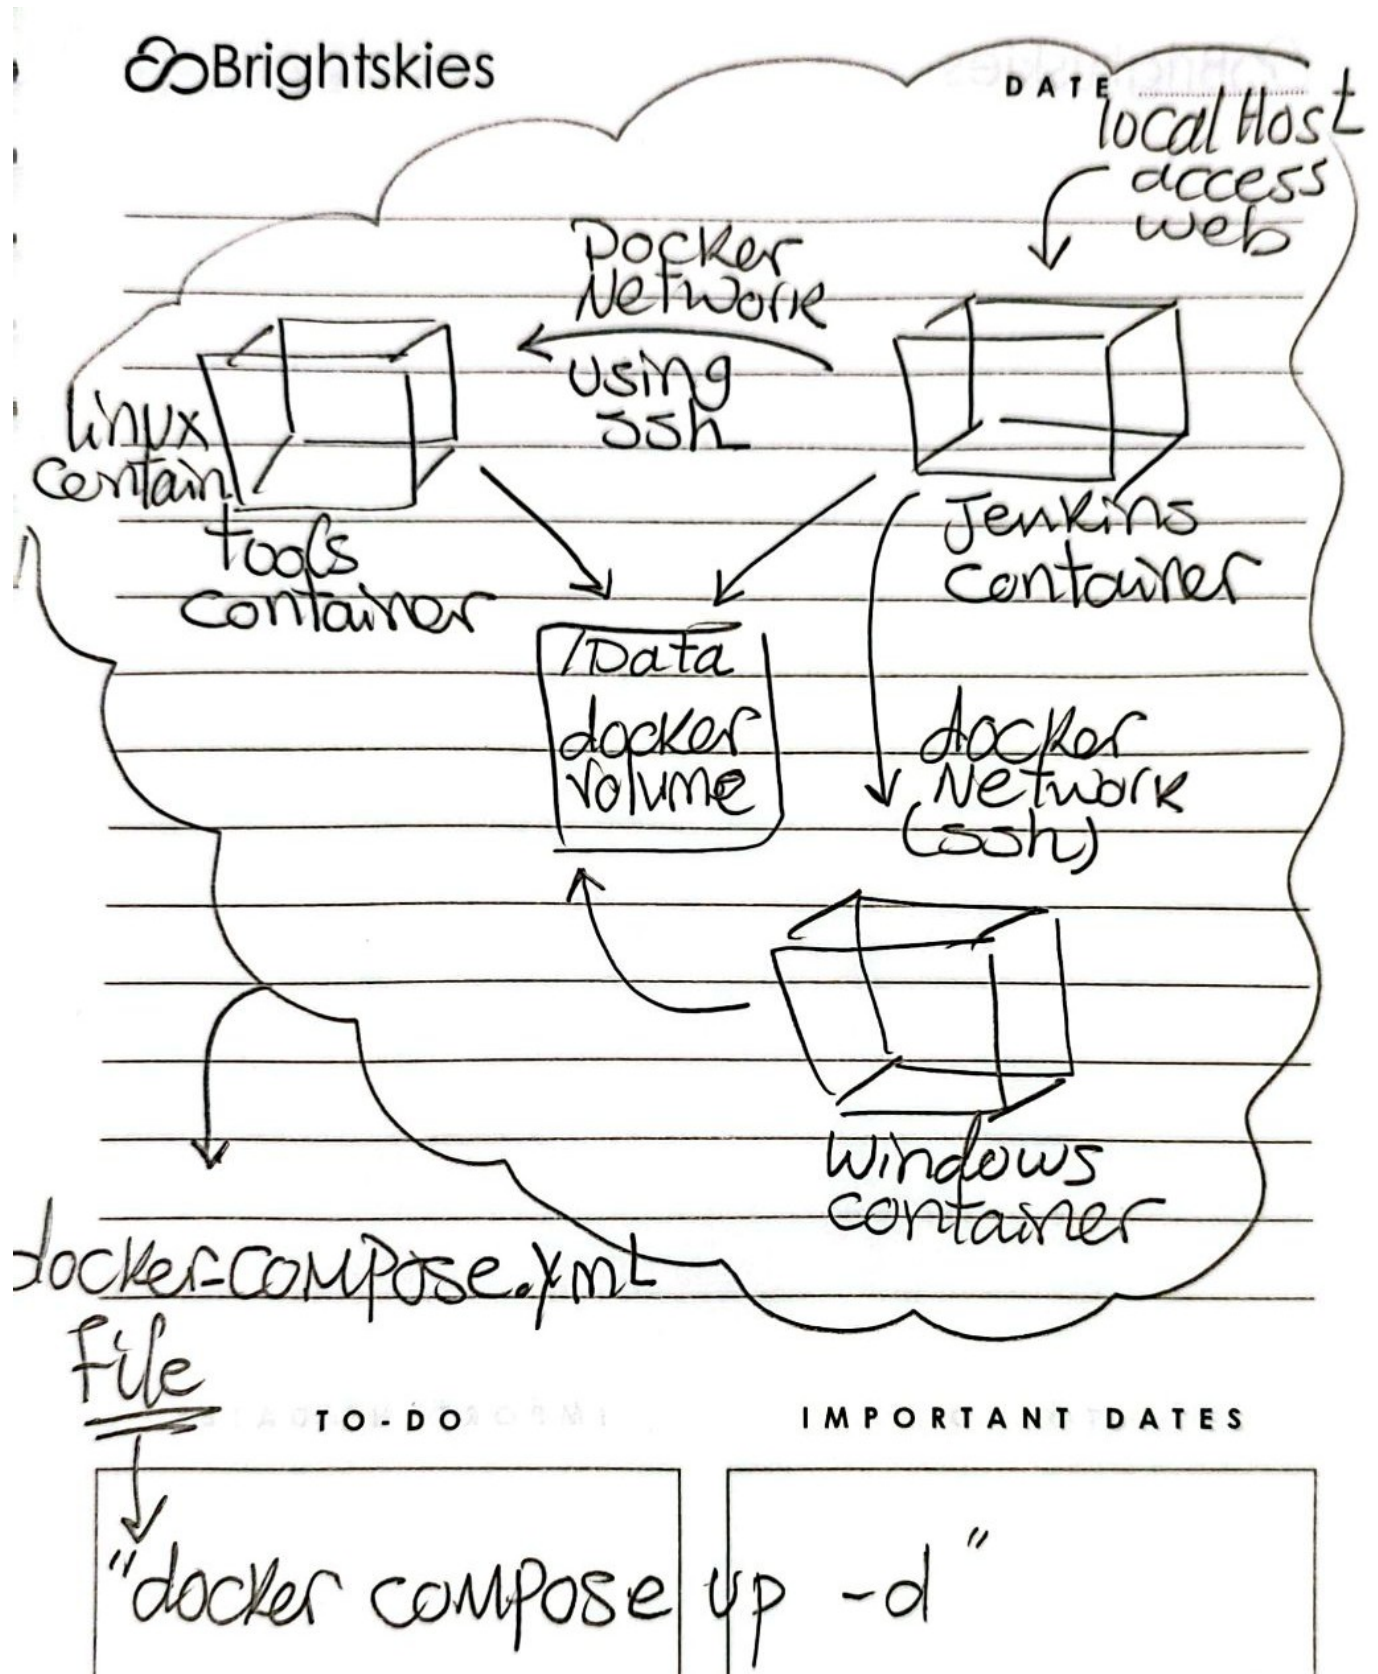 Brightskies
DATE
localHost
access
web
Docker
Network
using
ssh
linux
contain
tools
container
Jenkins
container
/Data
docker
volume
docker
Network
(ssh)
windows
container
docker-compose.yml
File
TO-DO
IMPORTANT DATES
"docker compose up -d"